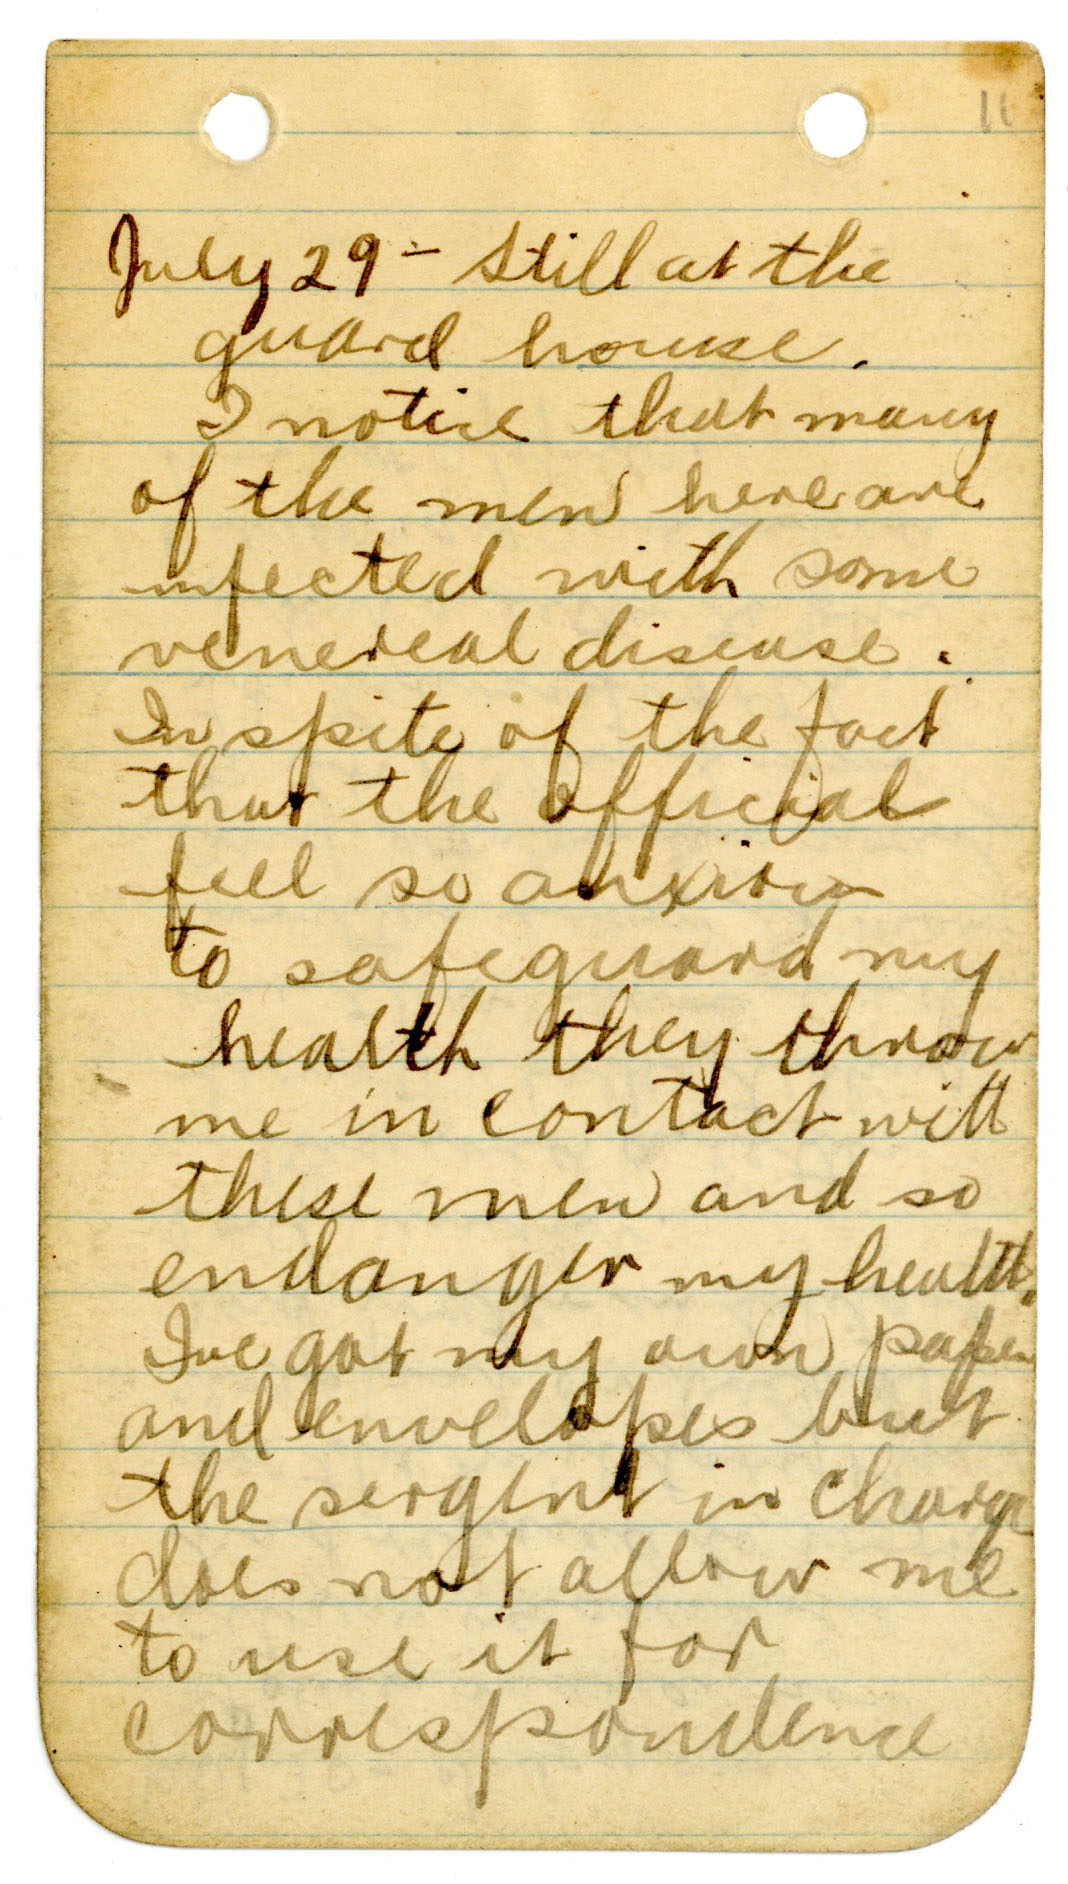 11
July 29 - Still at the
guard house.
I notice that many
of the men here are
infected with some
venereal disease.
In spite of the fact
that the official
feel so anxious
to safeguard my
health they throw
me in contact with
these men and so
endanger my health.
Ive got my own paper
and envelopes but
the sergent in charge
does not allow me
to use it for
correspondence